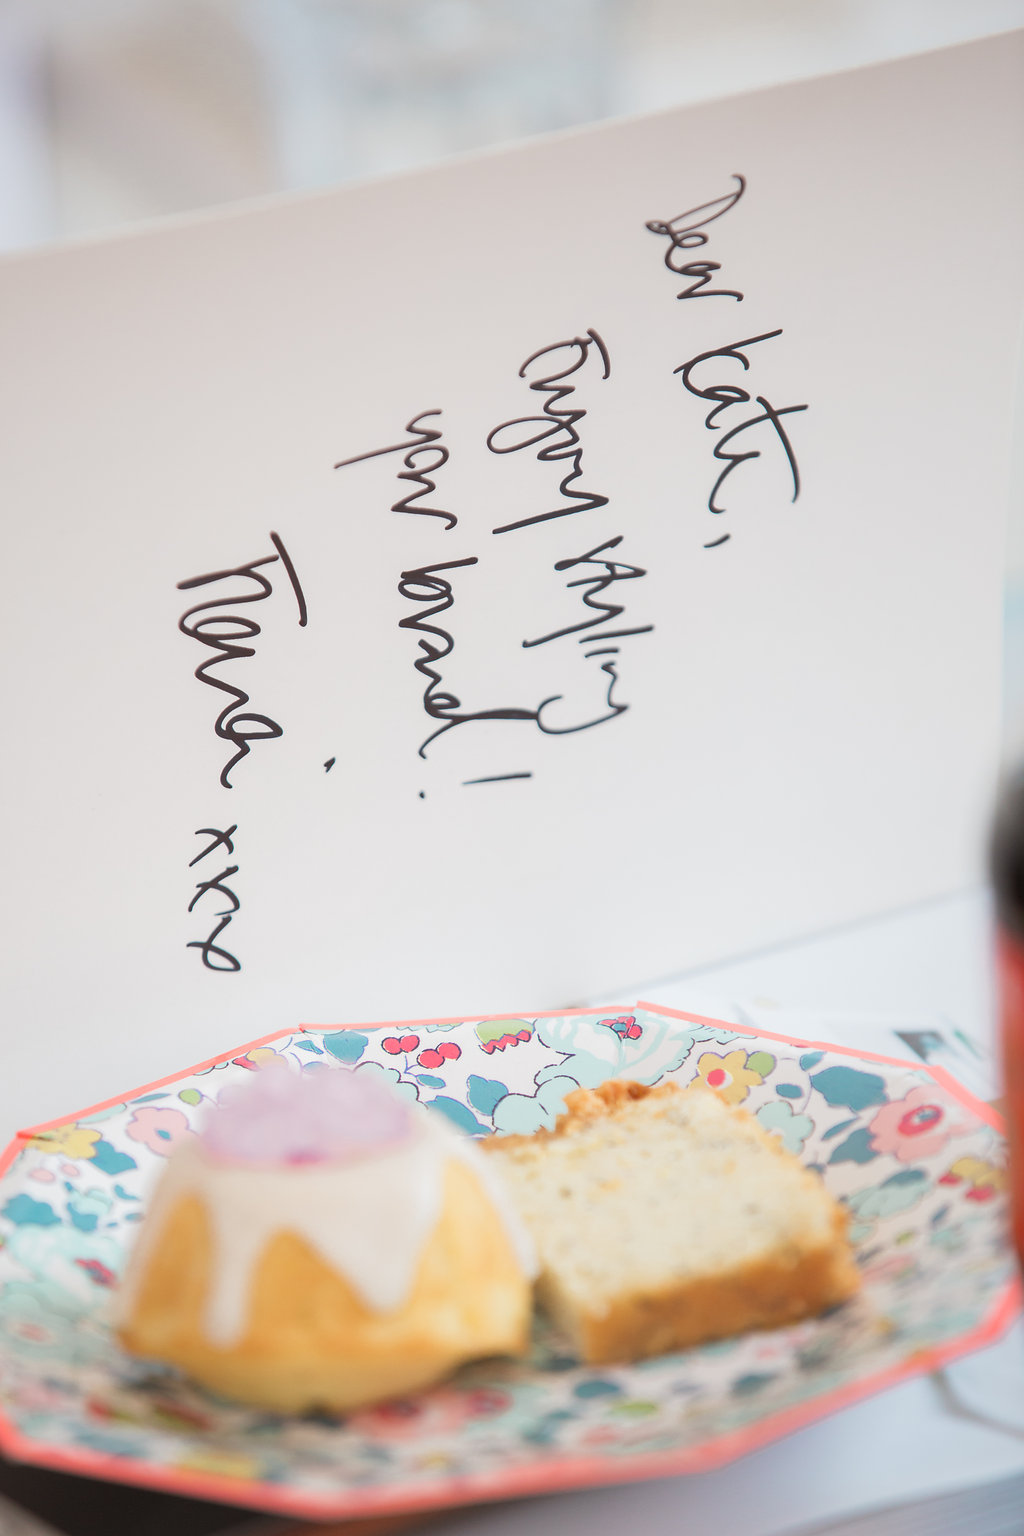 Dear Kate,
Enjoy styling
your brand!
Fiona xxx